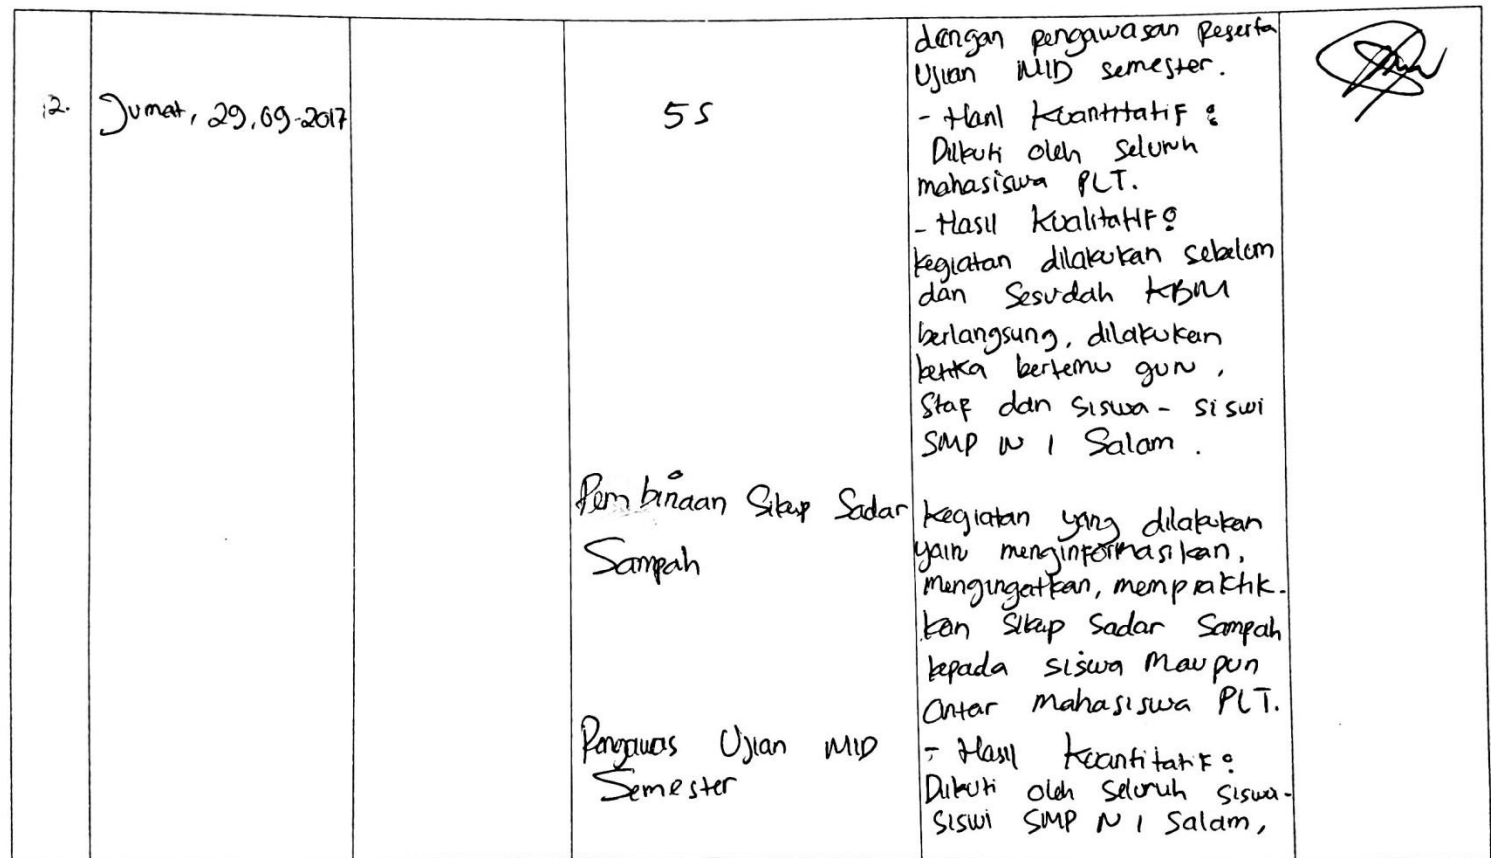 dengan pengawasan Peserta
Ujian MID semester.
12. Jumat, 29,09-2017
5S
- Hasil Kuantitatif :
Diikuti oleh Seluruh
mahasiswa PLT.
- Hasil Kualitatif :
kegiatan dilakukan sebelum
dan Sesudah KBM
berlangsung, dilakukan
ketika bertemu guru,
Staf dan Siswa - siswi
SMP N 1 Salam.
Pembinaan Sikap Sadar
Sampah
kegiatan yang dilakukan
yaitu menginformasikan,
mengingatkan, mempraktik-
kan Sikap Sadar Sampah
kepada siswa Maupun
Antar Mahasiswa PLT.
Pengawas Ujian MID
Semester
- Hasil Kuantitatif :
Diikuti oleh Seluruh Siswa-
siswi SMP N 1 Salam,